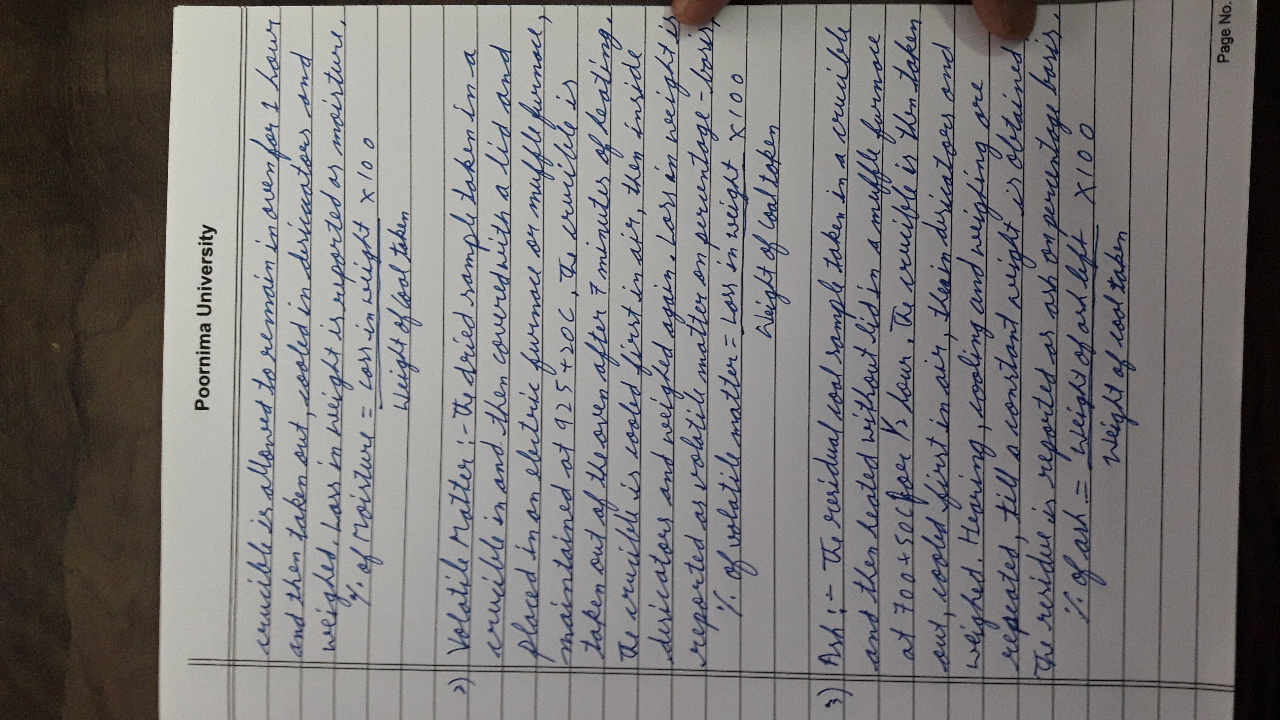 Poornima University
crucible is allowed to remain in oven for 1 hour
and then taken out, cooled in desiccators and
weighed. Loss in weight is reported as moisture.
% of Moisture = Loss in weight × 100
Weight of Coal taken
2) Volatile Matter :- The dried sample taken in a
crucible in and then covered with a lid and
placed in an electric furnace or muffle furnace,
maintained at 925+20C. The crucible is
taken out of the oven after 7 minutes of heating.
The crucible is cooled first in air, then inside
desicators and weighed again. Loss in weight is
reported as volatile matter on percentage-basis,
% of volatile matter = Loss in weight × 100
Weight of Coal taken
3) Ash :- The residual coal sample taken in a crucible
and then heated without lid in a muffle furnace
at 700+50C for 1/2 hour. The crucible is then taken
out, cooled first in air, then in desicators and
weighed. Hearing, cooling and weighing are
repeated, till a constant weight is obtained
The residue is reported as ash on percentage basis.
% of ash = Weight of ash left × 100
Weight of coal taken
Page No.